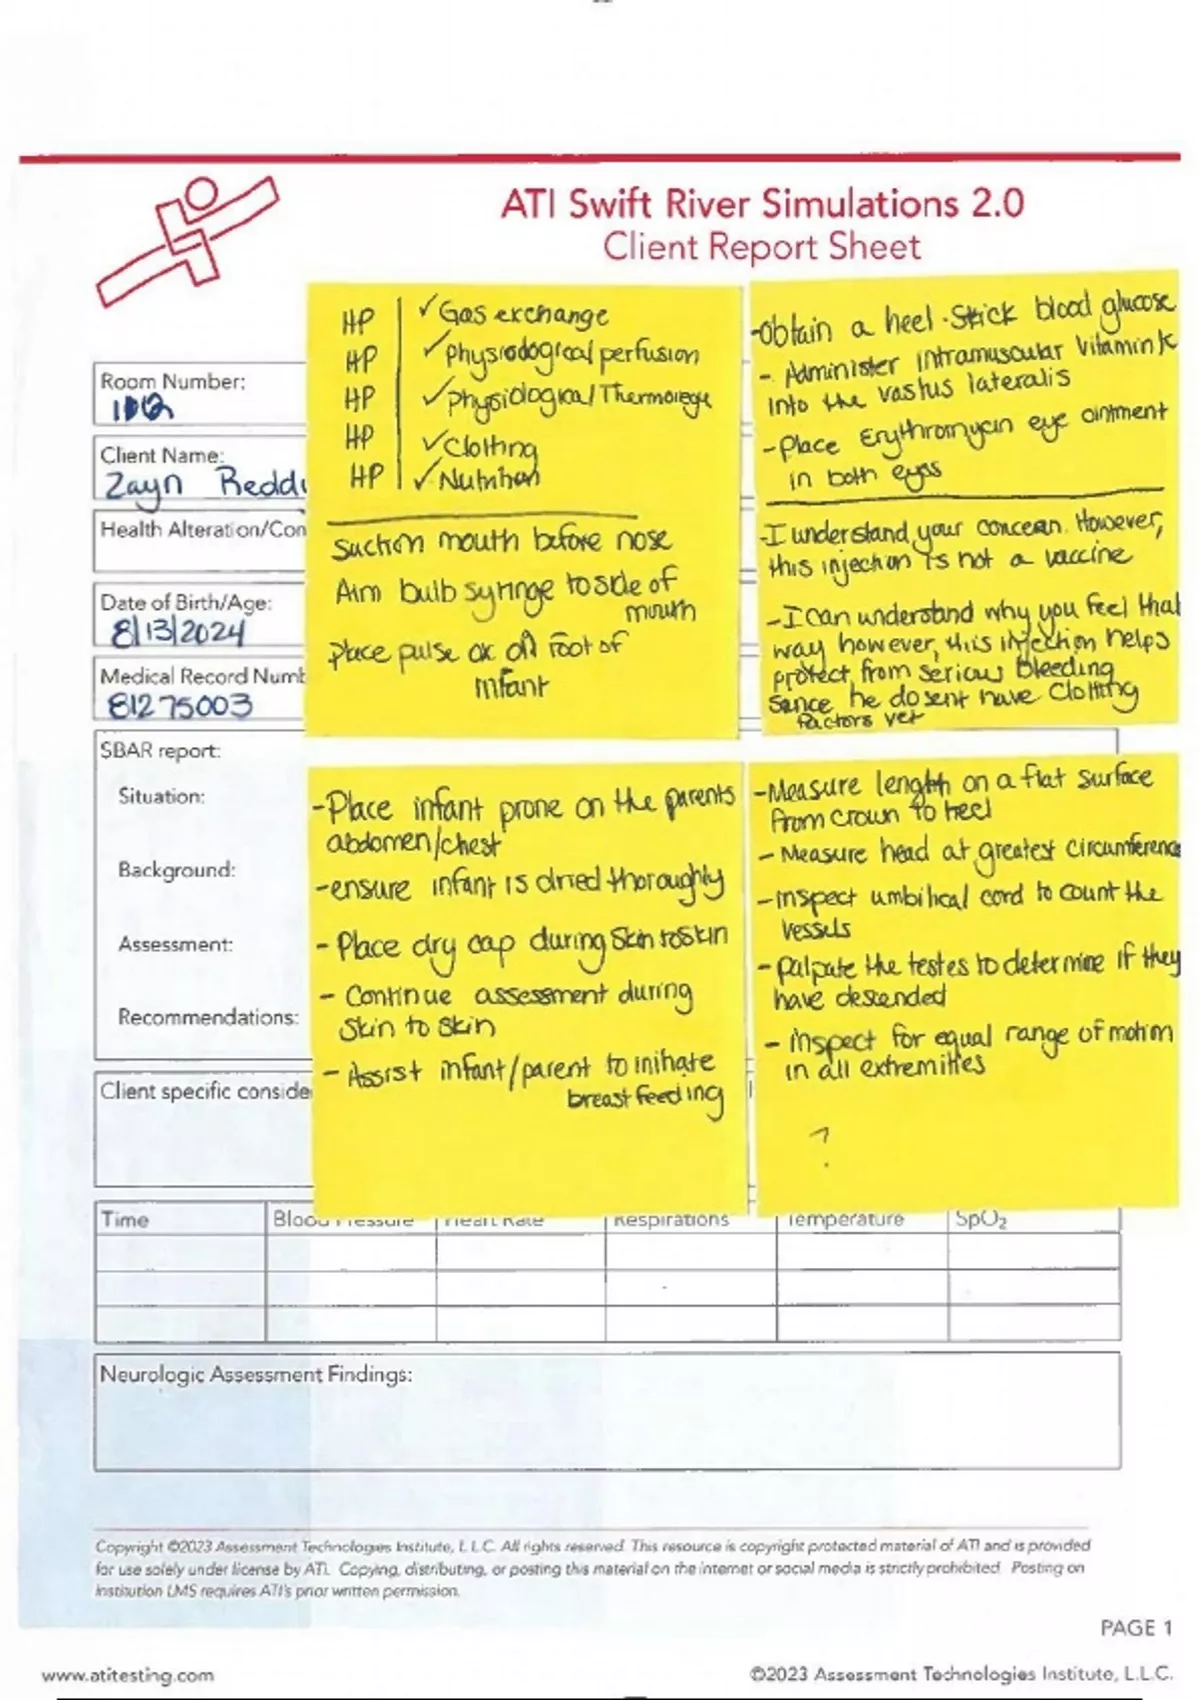 ATI Swift River Simulations 2.0
Client Report Sheet
HP ✓Gas exchange
HP ✓Physiodogical perfusion
HP ✓Physiological Thermorege
HP ✓Clotting
HP ✓Nutrition
Suction mouth before nose
Aim bulb syringe to side of
mouth
Place pulse ox on foot of
infant
-Obtain a heel-stick blood glucose
- Administer intramuscular Vitamin K
into the vastus lateralis
-Place Erythromycin eye ointment
in both eyes
-I understand your concern. However,
this injection is not a vaccine
-I can understand why you feel that
way however, this injection helps
protect from serious bleeding
Sance he dosent have Clotting
factors yet
Room Number:
Client Name:
Zayn Reddi
Health Alteration/Con
Date of Birth/Age:
8/13/2024
Medical Record Numb
81275003
SBAR report:
Situation:
Background:
Assessment:
Recommendations:
-Place infant prone on the parents
abdomen/chest
-ensure infant is dried thoroughly
- Place dry cap during Skin to Skin
- Continue assessment during
Skin to Skin
- Assist infant/parent to initiate
breast feeding
-Measure length on a flat surface
from crown to heel
- Measure head at greatest circumference
-Inspect umbilical cord to count the
vessels
- Palpate the testes to determine if they
have descended
- Inspect for equal range of motion
in all extremities
?
Client specific conside
Time Blood Pressure Heart Rate Respirations Temperature SpO2
Neurologic Assessment Findings:
Copyright ©2023 Assessment Technologies Institute, L.L.C. All rights reserved. This resource is copyright protected material of ATI and is provided
for use solely under license by ATI. Copying, distributing, or posting this material on the internet or social media is strictly prohibited. Posting on
Institution LMS requires ATI's prior written permission.
PAGE 1
www.atitesting.com ©2023 Assessment Technologies Institute, L.L.C.